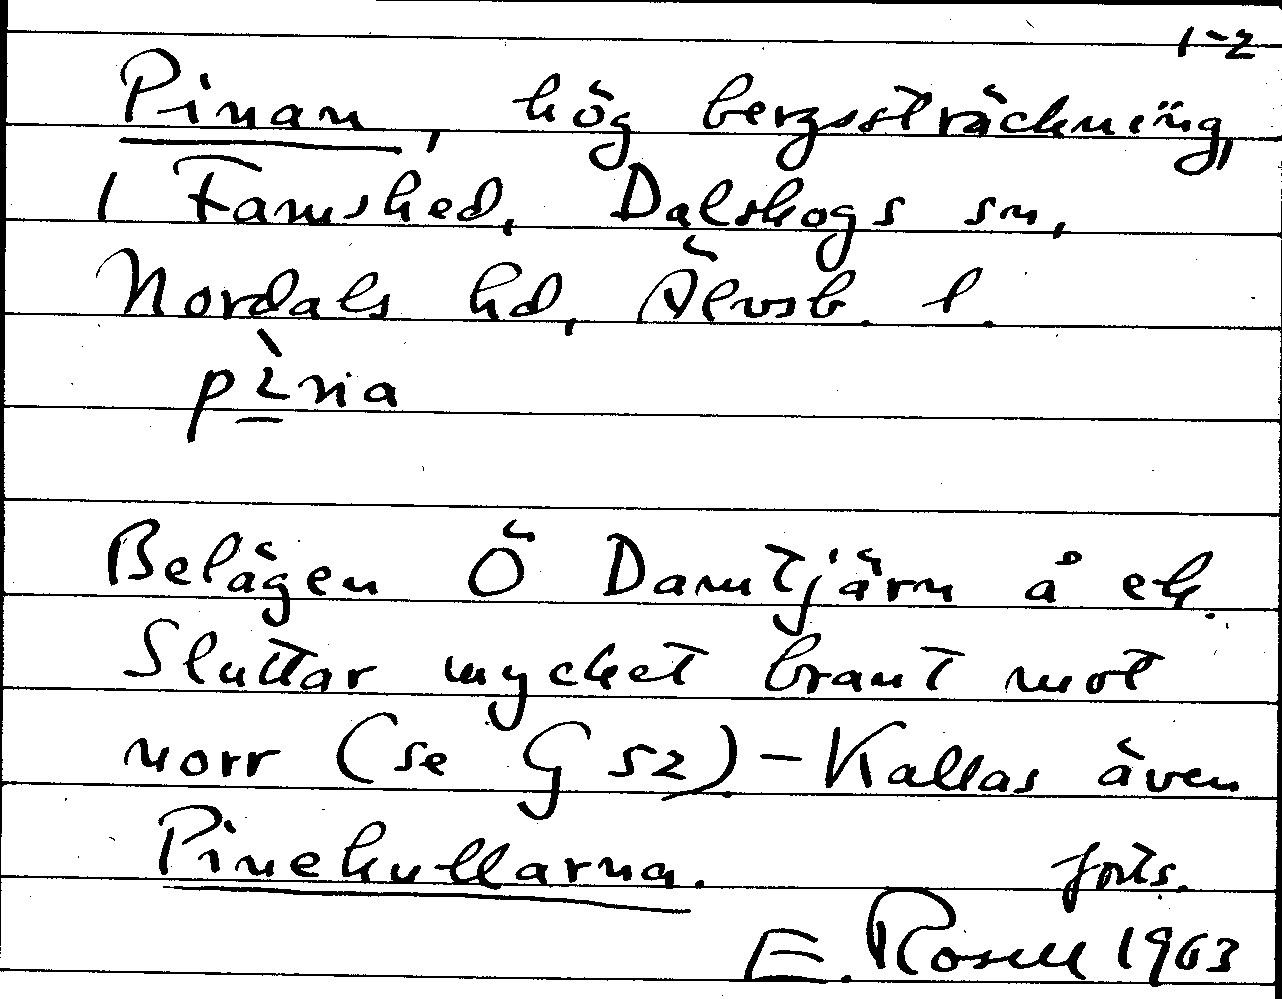 1-2
Pinan, hög bergssträckning,
i Famshed, Dalskogs sn,
Nordals hd, Älvsb. l.
pìna
Belägen Ö Damtjärn å ek.
Sluttar mycket brant mot
norr (se G 52) - Kallas även
Pinekullarna. forts.
E. Rosell 1963